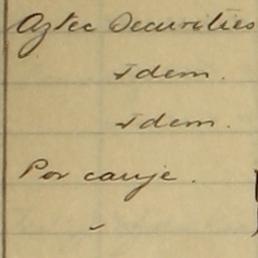 Aztec Securities
Idem.
Idem.
Por canje.
"